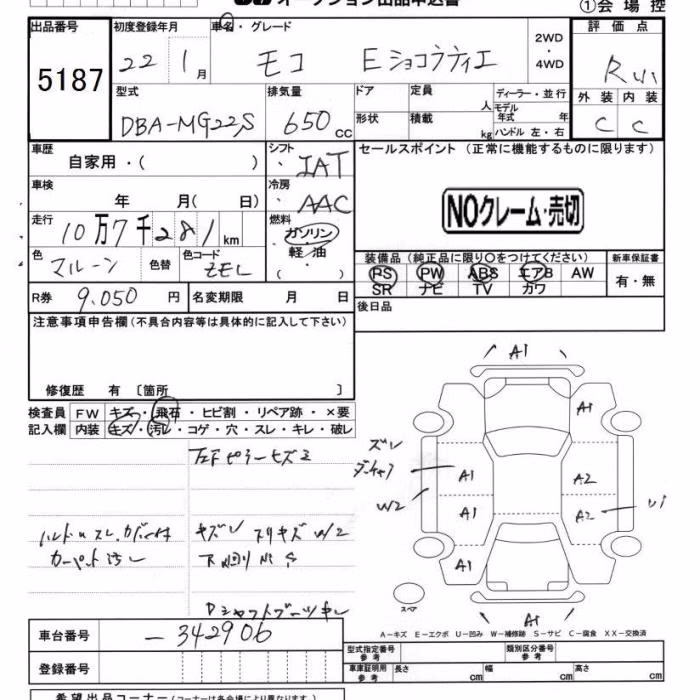 ①会場控
出品番号 初度登録年月 車名・グレード 2WD・4WD 評価点
5187 22 1月 モコ Eショコラティエ R
型式 排気量 ドア 定員 人 ディーラー・並行 外装 内装
DBA-MG22S 650 cc 形状 積載 kg モデル年式 年 ハンドル 左・右 C C
車歴 シフト セールスポイント (正常に機能するものに限ります)
自家用・( ) IAT
車検 冷房
年 月( 日) AAC NOクレーム・売切
走行 燃料
10万7千281km ガソリン・軽油
色 色替 色コード ( ) 装備品 (純正品に限り○をつけてください) 新車保証書
マルーン ZEL PS PW ABS エアB AW 有・無
R券 9,050円 名変期限 月 日 SR ナビ TV カワ
注意事項申告欄(不具合内容等は具体的に記入して下さい) 後日品
修復歴 有 〔箇所 〕
検査員 FW キズ・飛石・ヒビ割・リペア跡・×要
記入欄 内装 キズ・汚レ・コゲ・穴・スレ・キレ・破レ
A1
A1
A1 A2
W2 A1 A2
A1
A1
キズレ スリキズ W/2
カーペット汚レ 下回りサS
Dシャフトブーツ
スペア
A-キズ E-エクボ U-凹み W-補修跡 S-サビ C-腐食 XX-交換済
車台番号 -342906
型式指定番号 参考 類別区分番号 参考
登録番号 車庫証明用 参考 長さ cm 幅 cm 高さ cm
希望出品コーナー